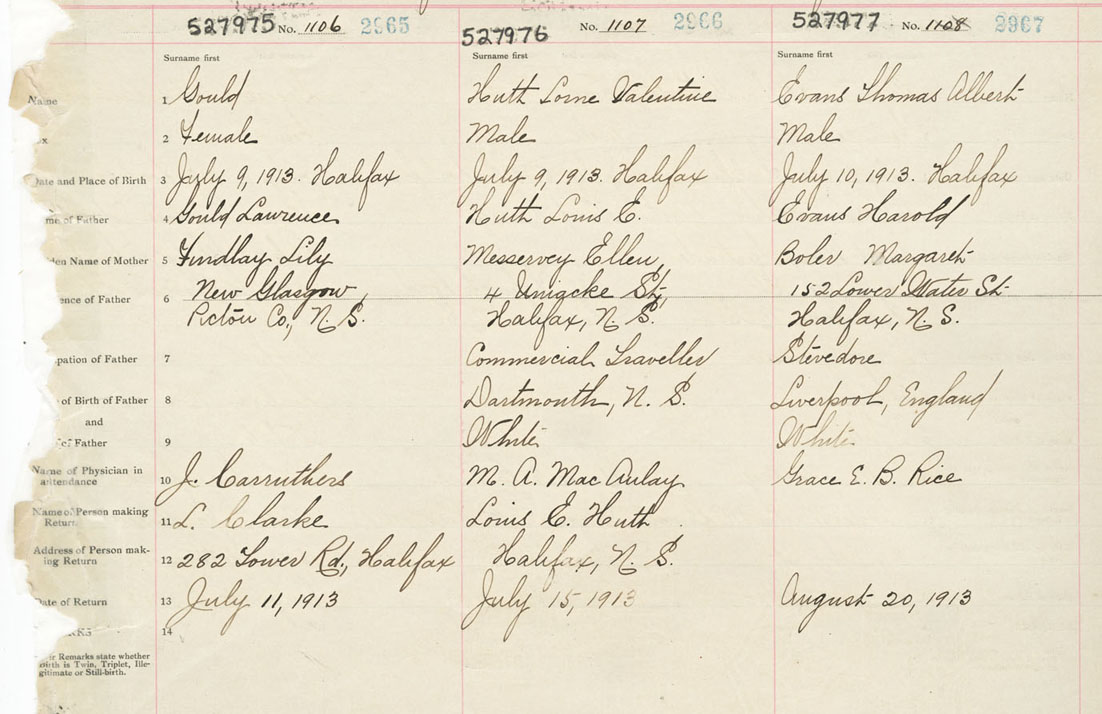 527975 No. 1106 2965
527976 No. 1107 2966
527977 No. 1108 2967
Surname first Surname first Surname first
Name 1 Gould Huth Lorne Valentine Evans Thomas Albert
x 2 Female Male Male
Date and Place of Birth 3 July 9, 1913. Halifax July 9, 1913. Halifax July 10, 1913. Halifax
me of Father 4 Gould Lawrence Huth Louis E. Evans Harold
den Name of Mother 5 Findlay Lily Messervey Ellen Boler Margaret
ence of Father 6 New Glasgow, 4 Uniacke St, 152 Lower Water St.
Pictou Co., N. S. Halifax, N. S. Halifax, N. S.
pation of Father 7 Commercial Traveller Stevedore
of Birth of Father 8 Dartmouth, N. S. Liverpool, England
and
of Father 9 White White
Name of Physician in
attendance 10 J. Carruthers M. A. MacAulay Grace E. B. Rice
Name of Person making
Return 11 L. Clarke Louis E. Huth
Address of Person mak-
ing Return 12 282 Tower Rd., Halifax Halifax, N. S.
Date of Return 13 July 11, 1913 July 15, 1913 August 20, 1913
RKS 14
r Remarks state whether
Birth is Twin, Triplet, Ille-
gitimate or Still-birth.